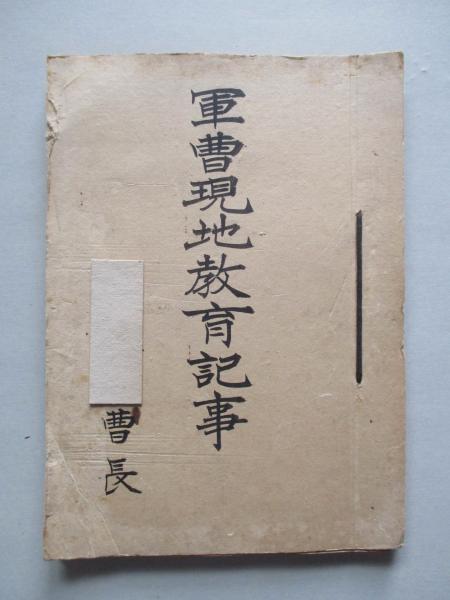 軍曹現地教育記事
曹長